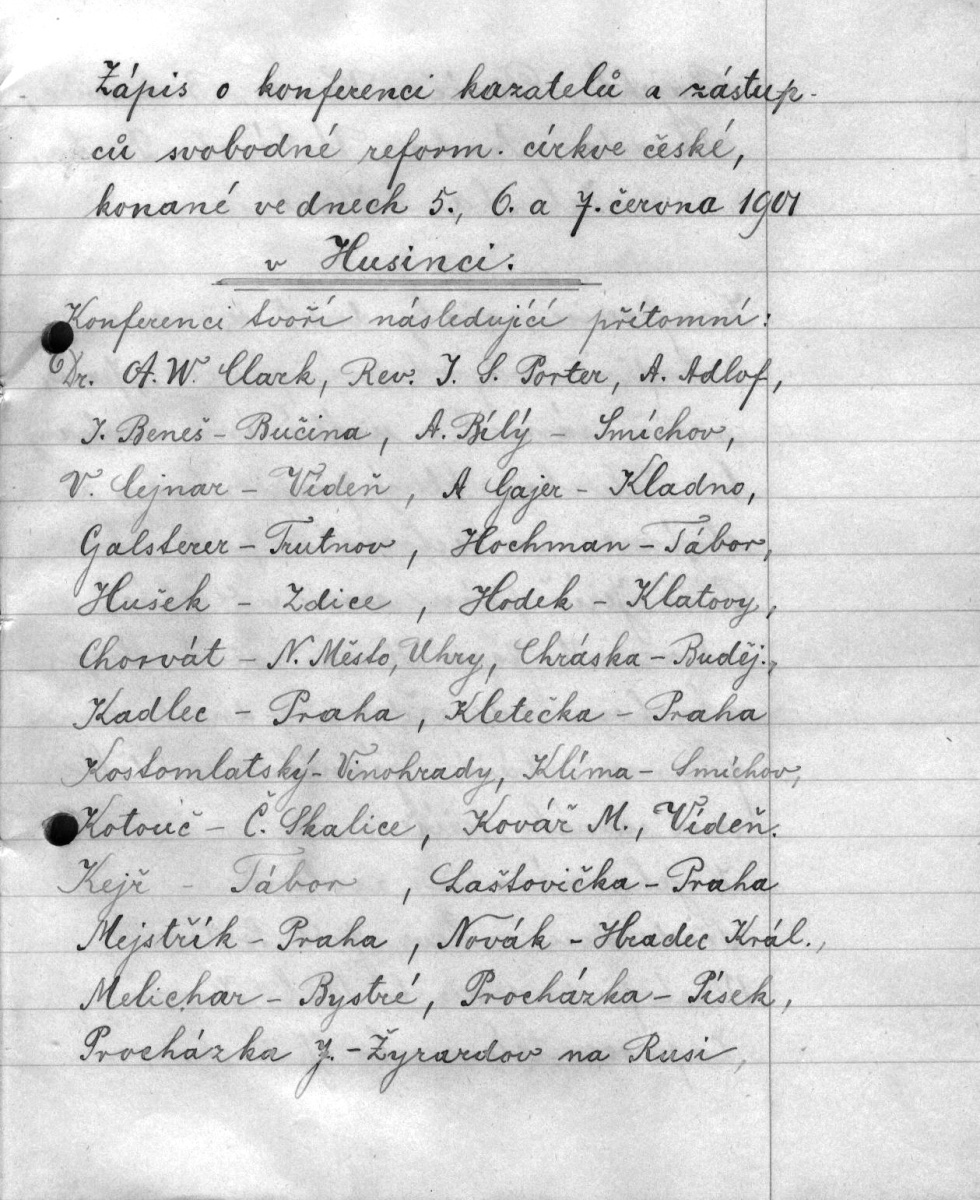 Zápis o konferenci kazatelů a zástup-
ců svobodné reform. církve české,
konané ve dnech 5., 6. a 7. června 1901
v Husinci.
Konferenci tvoří následující přítomní:
Dr. A. W. Clark, Rev. J. S. Porter, A. Adlof,
J. Beneš - Bučina, A. Bílý - Smíchov,
V. Cejnar - Vídeň, A Gajer - Kladno,
Galsterer - Trutnov, Hochman - Tábor,
Hušek - Zdice, Hodek - Klatovy,
Chorvát - N. Město, Uhry, Chráska - Buděj.,
Kadlec - Praha, Kletečka - Praha
Kostomlatský - Vinohrady, Klíma - Smíchov,
Kotouč - Č. Skalice, Kovář M., Vídeň.
Kejř - Tábor, Laštovička - Praha
Mejstřík - Praha, Novák - Hradec Král.,
Melichar - Bystré, Procházka - Písek,
Procházka J. - Žyrardov na Rusi,